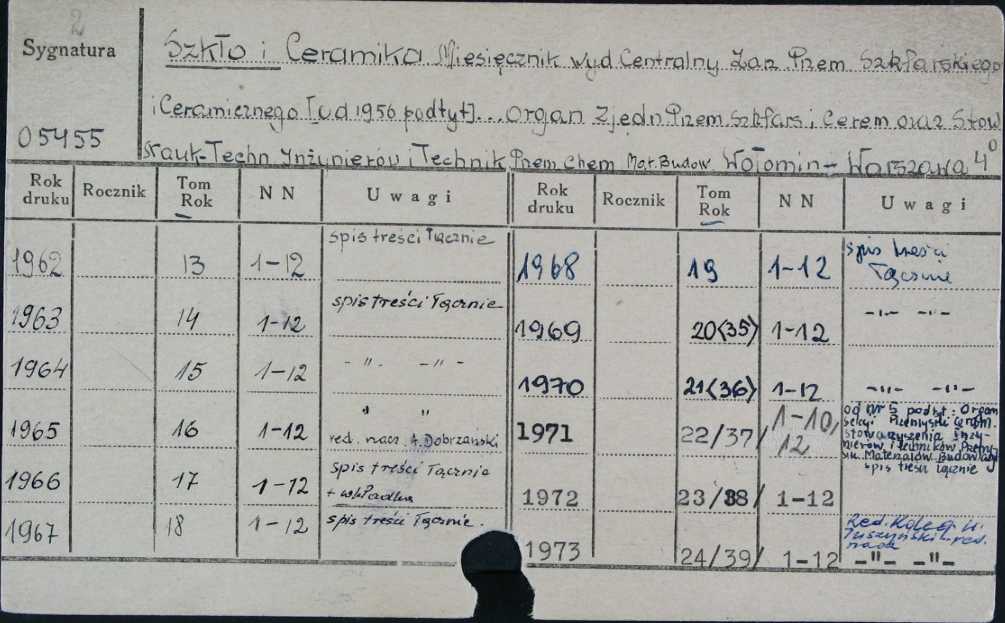 2
Sygnatura
Szkło i Ceramika Miesięcznik wyd Centralny Zarz Przem Szklarskiego
i Ceramicznego [od 1956 podtyt]... Organ Zjedn Przem Szklars. i Cerem oraz Stow
05455
Nauk-Techn Inżynierów i Technik Przem Chem Mat. Budow Wołomin - Warszawa 4°
Rok druku Rocznik Tom Rok N N Uwagi Rok druku Rocznik Tom Rok N N Uwagi
1962 13 1-12 spis treści łącznie
1963 14 1-12 spis treści łącznie
1964 15 1-12 - " - - " -
1965 16 1-12 " "
red. nacz. A. Dobrzański
1966 17 1-12 spis treści łącznie
+ wkładka
1967 18 1-12 spis treści łącznie.
1968 19 1-12 spis treści
łącznie
1969 20(35) 1-12 -"- -"-
1970 21(36) 1-12 -"- -"-
1971 22/37/ 1-10,
12
od nr 5 podtyt: Organ
sekcji Przemysłu Ceram.
Stowarzyszenia Inży-
nierów i Techników Przemy-
Materiałów Budowl
spis treści łącznie
1972 23/38/ 1-12
1973 24/39/ 1-12 Red. Koleg. H.
Tuszyński - red.
nacz
-"- -"-